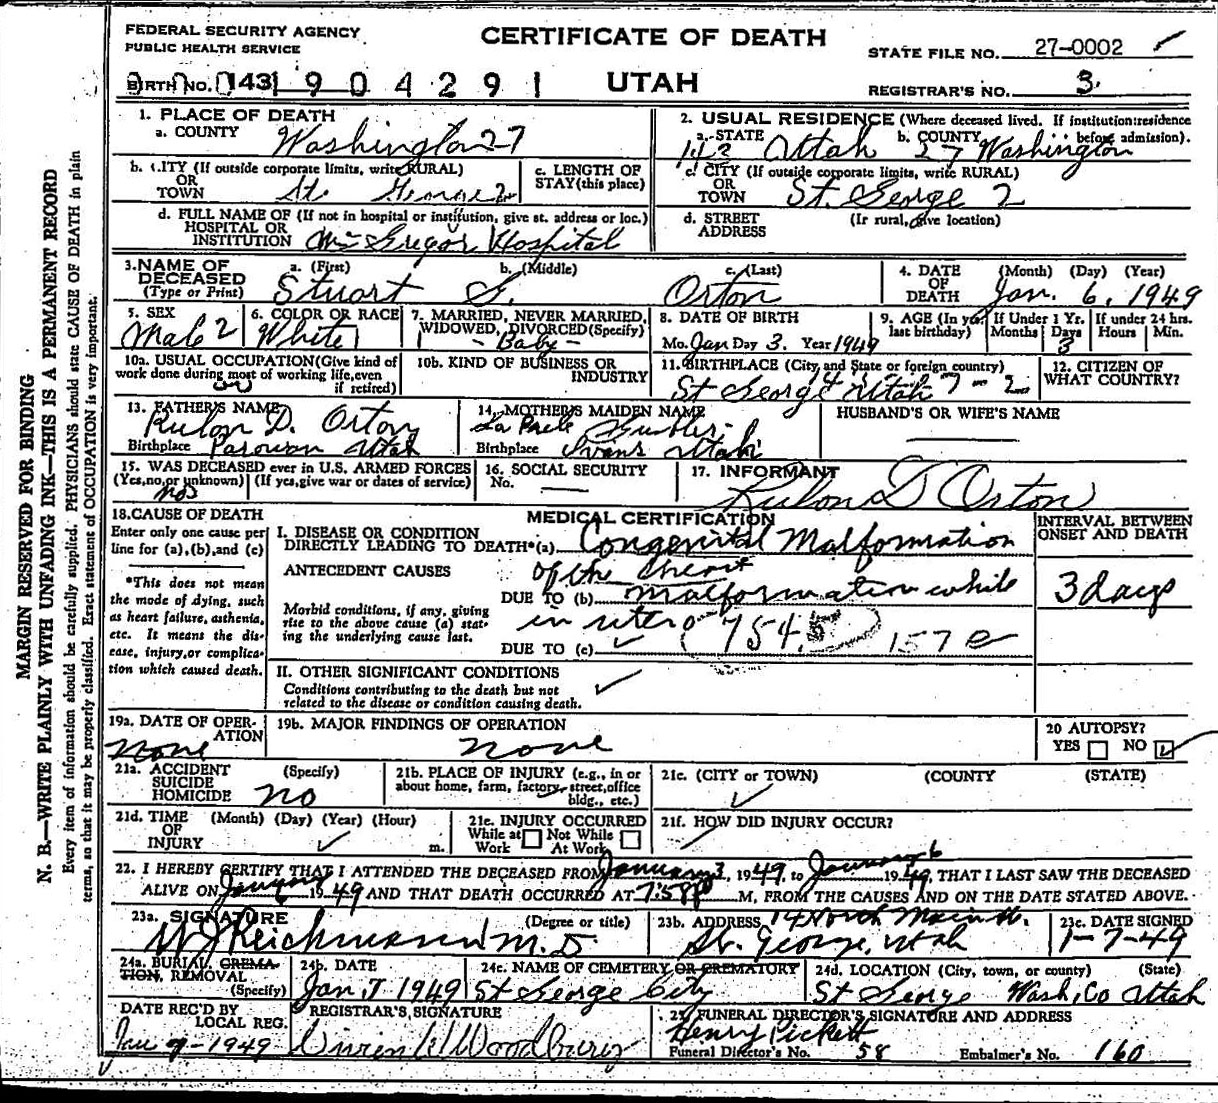 FEDERAL SECURITY AGENCY
PUBLIC HEALTH SERVICE
CERTIFICATE OF DEATH
STATE FILE NO. 27-0002
BIRTH NO. 143 1 9 0 4 2 9 1
UTAH
REGISTRAR'S NO. 3
MARGIN RESERVED FOR BINDING
N. B.—WRITE PLAINLY WITH UNFADING INK—THIS IS A PERMANENT RECORD
Every item of information should be carefully supplied. PHYSICIANS should state CAUSE OF DEATH in plain
terms, so that it may be properly classified. Exact statement of OCCUPATION is very important.
1. PLACE OF DEATH
a. COUNTY Washington 27
b. CITY (If outside corporate limits, write RURAL)
OR
TOWN St. George 2
c. LENGTH OF
STAY (this place)
d. FULL NAME OF (If not in hospital or institution, give st. address or loc.)
HOSPITAL OR
INSTITUTION McGregor Hospital
2. USUAL RESIDENCE (Where deceased lived. If institution: residence
before admission).
a. STATE Utah b. COUNTY 27 Washington
c. CITY (If outside corporate limits, write RURAL)
OR
TOWN St. George 2
d. STREET (If rural, give location)
ADDRESS
3. NAME OF
DECEASED
(Type or Print)
a. (First) b. (Middle) c. (Last)
Stuart G. Orton
4. DATE
OF
DEATH
(Month) (Day) (Year)
Jan. 6, 1949
5. SEX
Male 2
6. COLOR OR RACE
White 1
7. MARRIED, NEVER MARRIED,
WIDOWED, DIVORCED (Specify)
1 - Baby -
8. DATE OF BIRTH
Mo. Jan Day 3. Year 1949
9. AGE (In yrs. last birthday)
If Under 1 Yr.
Months Days
3
If under 24 hrs.
Hours Min.
10a. USUAL OCCUPATION (Give kind of
work done during most of working life, even
if retired)
10b. KIND OF BUSINESS OR
INDUSTRY
11. BIRTHPLACE (City and State or foreign country)
St George Utah 7-2
12. CITIZEN OF
WHAT COUNTRY?
13. FATHER'S NAME
Rulon D. Orton
Birthplace Parowan Utah
14. MOTHER'S MAIDEN NAME
Gubler
Birthplace Ivans Utah
HUSBAND'S OR WIFE'S NAME
15. WAS DECEASED ever in U.S. ARMED FORCES
(Yes, no, or unknown) (If yes, give war or dates of service)
no
16. SOCIAL SECURITY
No.
17. INFORMANT
Rulon D Orton
18. CAUSE OF DEATH
Enter only one cause per
line for (a), (b), and (c)
*This does not mean
the mode of dying, such
as heart failure, asthenia,
etc. It means the dis-
ease, injury, or complica-
tion which caused death.
MEDICAL CERTIFICATION
I. DISEASE OR CONDITION
DIRECTLY LEADING TO DEATH*(a) Congenital Malformation
of the heart
ANTECEDENT CAUSES
DUE TO (b) malformation while
in utero
Morbid conditions, if any, giving
rise to the above cause (a) stat-
ing the underlying cause last.
DUE TO (c)
754.5 157 e
INTERVAL BETWEEN
ONSET AND DEATH
3 days
II. OTHER SIGNIFICANT CONDITIONS
Conditions contributing to the death but not
related to the disease or condition causing death.
19a. DATE OF OPER-
ATION
None
19b. MAJOR FINDINGS OF OPERATION
none
20 AUTOPSY?
YES NO
21a. ACCIDENT
SUICIDE
HOMICIDE
(Specify)
no
21b. PLACE OF INJURY (e.g., in or
about home, farm, factory, street, office
bldg., etc.)
21c. (CITY or TOWN) (COUNTY (STATE)
21d. TIME (Month) (Day) (Year) (Hour)
OF
INJURY m.
21e. INJURY OCCURRED
While at Not While
Work At Work
21f. HOW DID INJURY OCCUR?
22. I HEREBY CERTIFY THAT I ATTENDED THE DECEASED FROM January 3, 1949, to January 6 1949, THAT I LAST SAW THE DECEASED
ALIVE ON January 6 1949 AND THAT DEATH OCCURRED AT 7:58 P M, FROM THE CAUSES AND ON THE DATE STATED ABOVE.
23a. SIGNATURE (Degree or title)
W J Reichmann M. D
23b. ADDRESS 14 North Main St.
St. George, Utah
23c. DATE SIGNED
1-7-49
24a. BURIAL, CREMA-
TION, REMOVAL
(Specify)
24b. DATE
Jan 7 1949
24c. NAME OF CEMETERY OR CREMATORY
St George City
24d. LOCATION (City, town, or county) (State)
St George Wash, Co Utah
DATE REC'D BY
LOCAL REG.
Jan 9-1949
REGISTRAR'S SIGNATURE
Woodbury
25. FUNERAL DIRECTOR'S SIGNATURE AND ADDRESS
Henry Pickett
Funeral Director's No. 58 Embalmer's No. 160